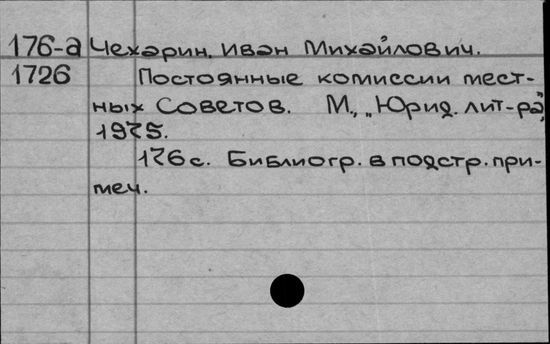 176-а Чехарин, Иван Михайлович.
1726 Постоянные комиссии мест-
ных Советов. М., „Юрид. лит-ра”,
1975.
176 с. Библиогр. в подстр. при-
меч.